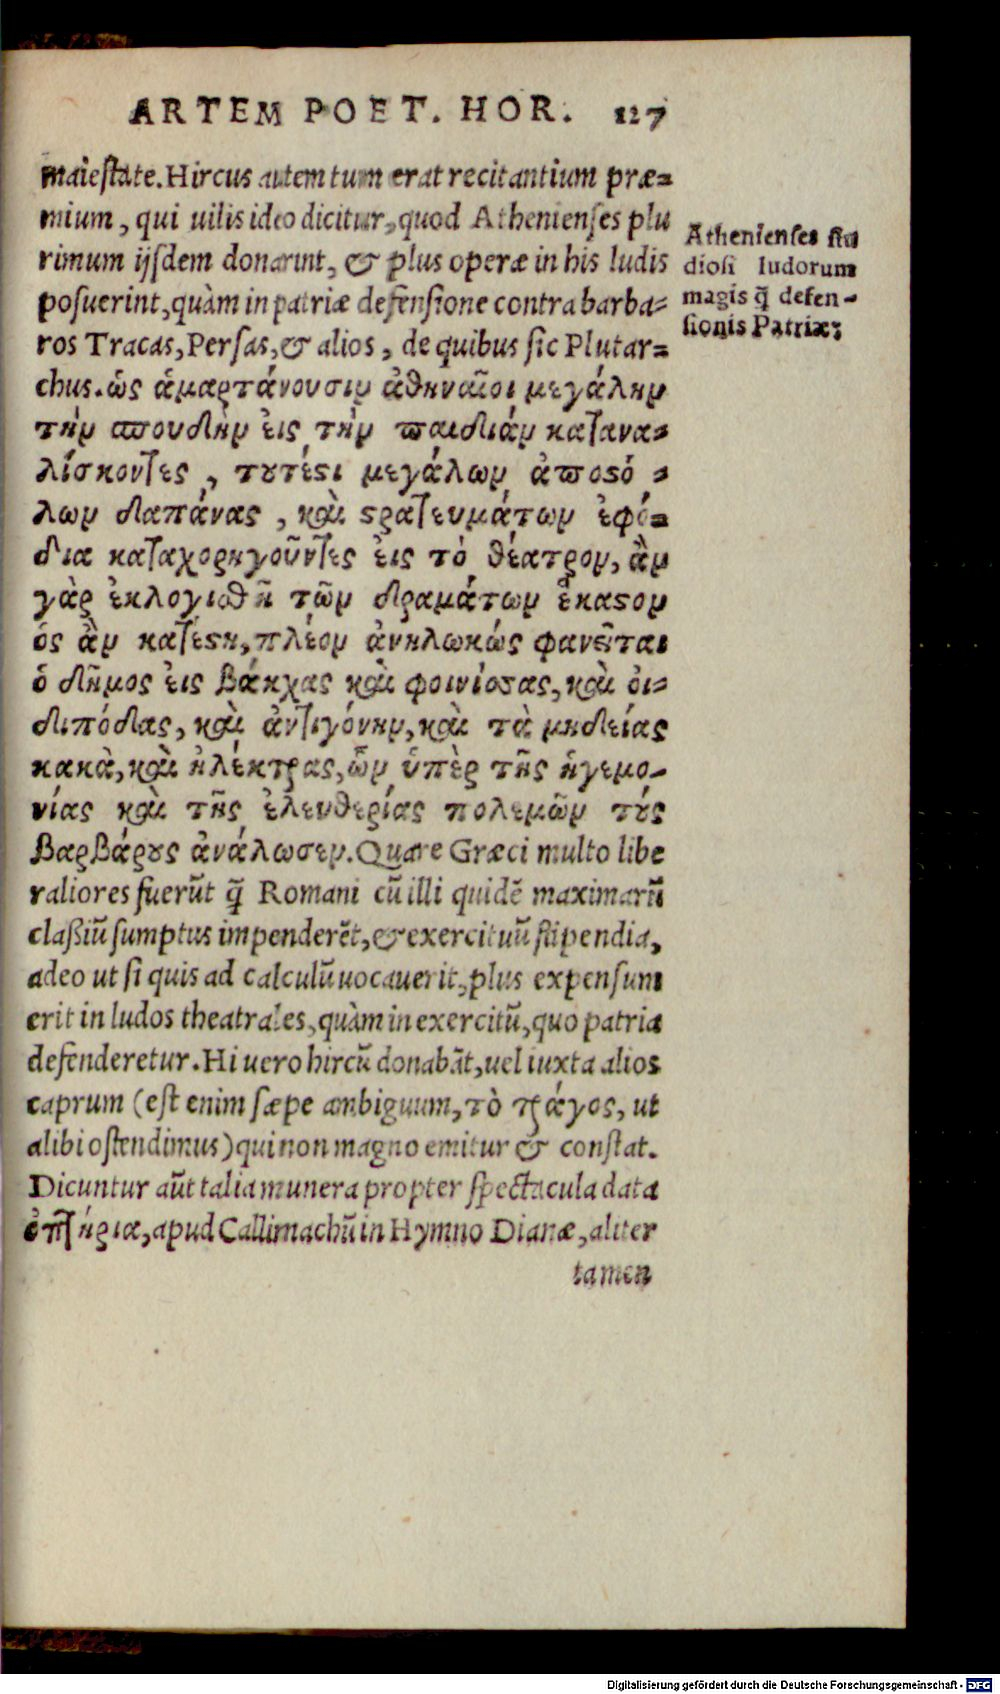 ARTEM POET. HOR. 127
maiestate. Hircus autem tum erat recitantium præ=
mium, qui uilis ideo dicitur, quod Athenienses plu
rimum ijsdem donarint, & plus operæ in his ludis
posuerint, quàm in patriæ defensione contra barba=
ros Tracas, Persas, & alios, de quibus sic Plutar=
chus. ὡς ἁμαρτάνουσιν ἀθηναῖοι μεγάλην
τὴν σπουδὴν εἰς τὴν παιδιὰν καταna=
λίσκοντες, τουτέστι μεγάλων ἀποστό=
λων δαπάνας, καὶ στρατευμάτων ἐφό=
δια καταχορηγοῦντες εἰς τὸ θέατρον, ἂν
γὰρ ἐκλογισθῆ τῶν δραμάτων ἕκαστον
ὅς ἂν κατέστη, πλέον ἀνηλωκὼς φανεῖται
ὁ δῆμος εἰς βάκχας καὶ φοινίσσας, καὶ οἰ=
διπόδας, καὶ ἀντιγόνην, καὶ τὰ μηδείας
κακὰ, καὶ ἠλέκτρας, ὧν ὑπὲρ τῆς ἡγεμο-
νίας καὶ τῆς ἐλευθερίας πολεμῶν τοὺς
βαρβάρους ἀνάλωσεν. Quare Græci multo libe
raliores fuerūt q̄ Romani cū illi quidē maximarū
claßiū sumptus impenderēt, & exercituū stipendia,
adeo ut si quis ad calculū uocauerit, plus expensum
erit in ludos theatrales, quàm in exercitū, quo patria
defenderetur. Hi uero hircū donabāt, uel iuxta alios
caprum (est enim sæpe ambiguum, τὸ τράγος, ut
alibi ostendimus) qui non magno emitur & constat.
Dicuntur aūt talia munera propter spectacula data
ὀπτήρια, apud Callimachū in Hymno Dianæ, aliter
tamen
Athenienses stu
diosi ludorum
magis q̄ defen-
sionis Patriæ;
Digitalisierung gefördert durch die Deutsche Forschungsgemeinschaft - DFG